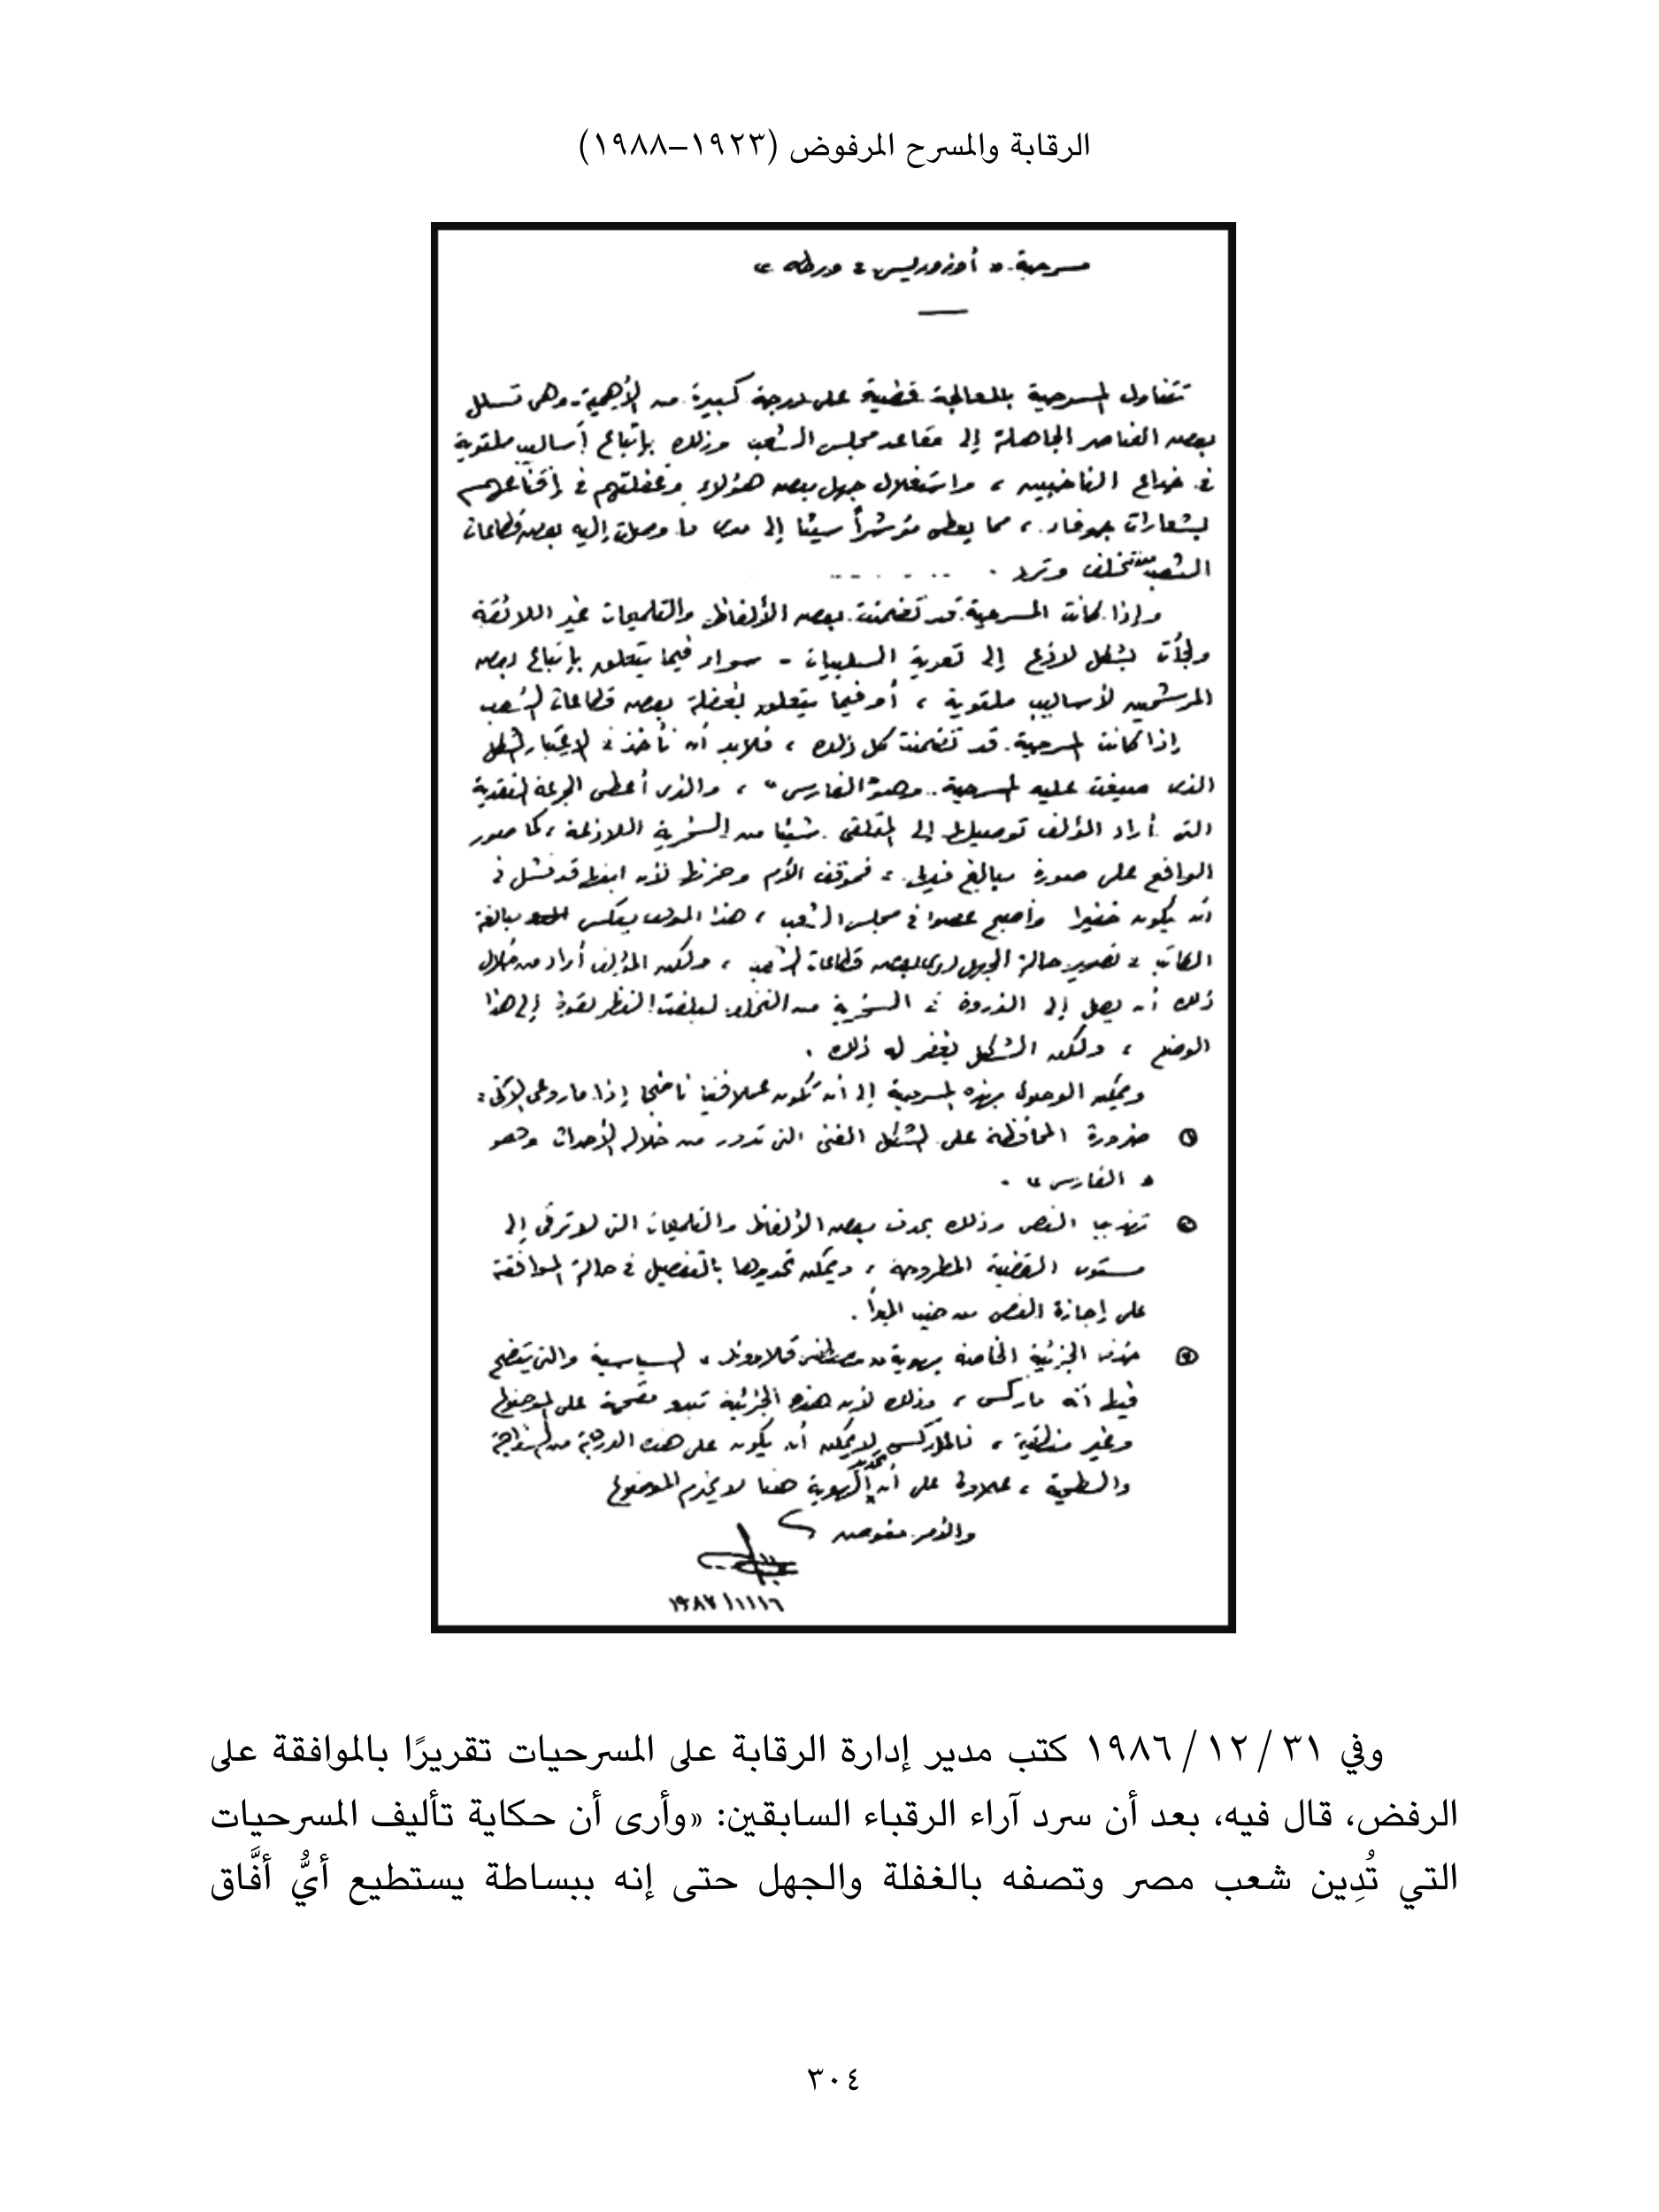 الرقابة والمسرح المرفوض (١٩٢٣–١٩٨٨)
مسرحية «
تتناول المسرحية بالمعالجة قضية على درجة كبيرة من الأهمية - وهى تسلل
بعض العناصر الجاهلة إلى مقاعد مجلس الشعب وذلك بإتباع أساليب ملتوية
فى خداع الناخبين ، واستغلال جهل بعض هؤلاء وغفلتهم فى إقناعهم
بشعارات جوفاء ، مما يعطى مؤشراً سيئا إلى مدى ما وصلت إليه بعض قطاعات
الشعب من تخلف وترد .
وإذا كانت المسرحية قد تضمنت بعض الألفاظ والتلميحات غير اللائقة
ولجأت بشكل لاذع إلى تعرية السلبيات - سواء فيما يتعلق بإتباع بعض
المرشحين لأساليب ملتوية ، أو فيما يتعلق بغفلة بعض قطاعات الشعب
إذا كانت المسرحية قد تضمنت كل ذلك ، فلابد أن نأخذ فى الإعتبار الشكل
الذى صيغت عليه المسرحية وهو "الفارس" ، والذى أعطى الجرعة النقدية
التى أراد المؤلف توصيلها إلى المتلقى شيئا من السخرية اللاذعة ، كما صور
الواقع على صورة مبالغ فيها ، فموقف الأم وحزنها لأن ابنها قد فشل فى
أن يكون خفيرا وأصبح عضوا فى مجلس الشعب ، هذا الموقف يعكس مبالغة
الكاتب فى تصوير حالة الجهل لدى بعض قطاعات الشعب ، ولكن المؤلف أراد من خلال
ذلك أن يصل إلى الذروة فى السخرية من التخلف ليلفت النظر بقوة إلى هذا
الوضع ، ولكن الشكل يغفر له ذلك .
ويمكن الوصول بهذه المسرحية إلى أن تكون عملا فنيا ناضجا إذا ما روعى الآتى :
١ ضرورة المحافظة على الشكل الفنى التى تدور من خلاله الأحداث وهو
« الفارس » .
٢ تهذيب النص وذلك بحذف بعض الألفاظ والتلميحات التى لا ترقى إلى
مستوى القضية المطروحة ، ويمكن تحديدها بالتفصيل فى حالة الموافقة
على إجازة النص من حيث المبدأ .
٣ حذف الجزئية الخاصة بهوية « مصطفى » السياسية والتى يتضح
فيها أنه ماركسى ، وذلك لأن هذه الجزئية تبدو مقحمة على الموضوع
وغير منطقية ، فالماركسى لا يمكن أن يكون على هذه الدرجة من السذاجة
والسطحية ، علاوة على أن تحديد الهوية هنا لا يخدم الموضوع
والأمر مفوض
١٩٨٧/١١/١٦
وفي ٣١ / ١٢ / ١٩٨٦ كتب مدير إدارة الرقابة على المسرحيات تقريرًا بالموافقة على
الرفض، قال فيه، بعد أن سرد آراء الرقباء السابقين: «وأرى أن حكاية تأليف المسرحيات
التي تُدِين شعب مصر وتصفه بالغفلة والجهل حتى إنه ببساطة يستطيع أيُّ أفَّاق
٣٠٤